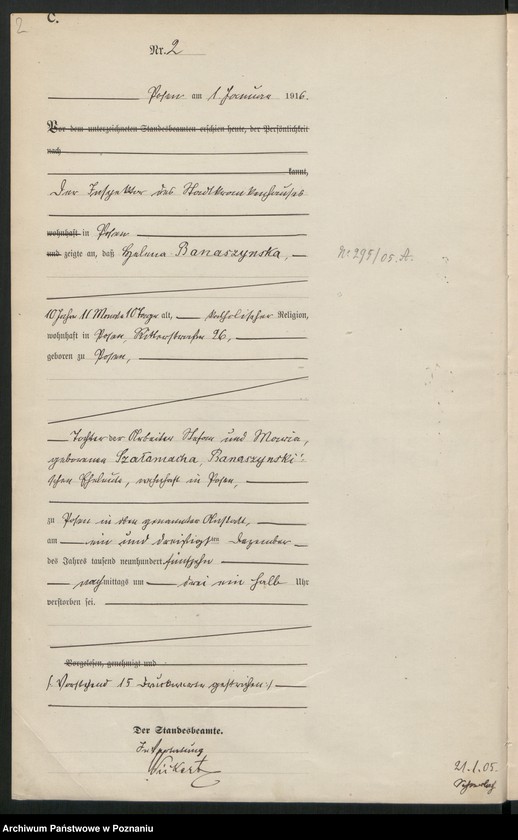 2
C.
Nr. 2
Posen am 1 Januar 1916.
Vor dem unterzeichneten Standesbeamten erschien heute, der Persönlichkeit
nach
kannt,
Der Inspektor des Stadtkrankenhauses
wohnhaft in Posen
und zeigte an, daß Helena Banaszynska,
No 295/05. A.
10 Jahre 11 Monate 10 Tage alt, katholischer Religion,
wohnhaft in Posen, Ritterstraße 26,
geboren zu Posen,
Tochter der Arbeiter Stefan und Maria,
geborenen Szałamacha, Banaszynski'
schen Eheleute, wohnhaft in Posen,
zu Posen in oben genannter Anstalt,
am ein und dreißigten Dezember
des Jahres tausend neunhundert fünfzehn
nachmittags um drei ein halb Uhr
verstorben sei.
Vorgelesen, genehmigt und
/: Vorstehend 15 Druckworte gestrichen :/
Der Standesbeamte.
In Vertretung
21.1.05.
Archiwum Państwowe w Poznaniu